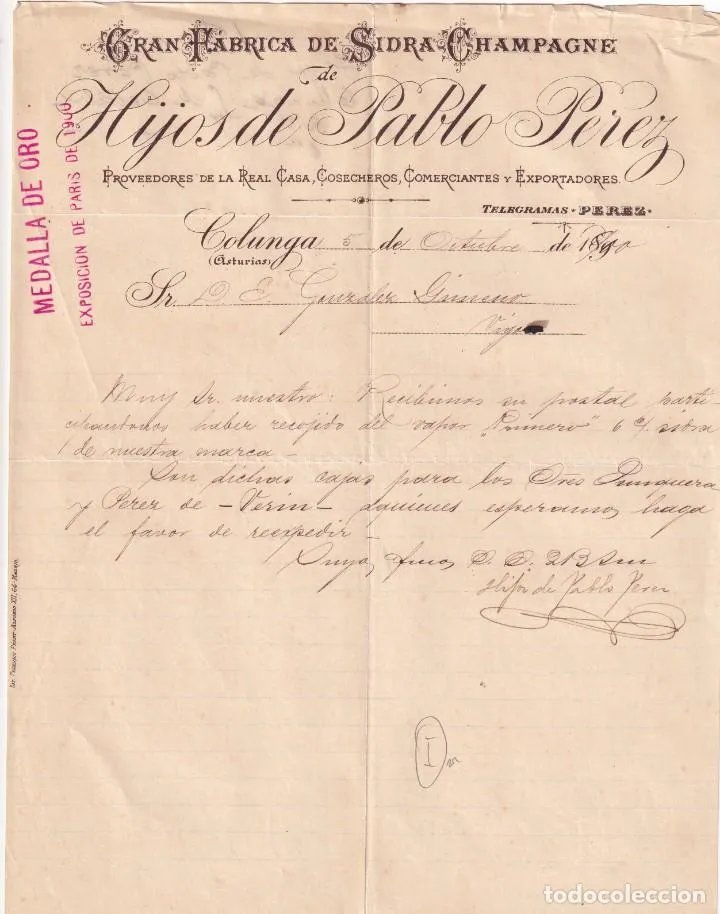 GRAN FÁBRICA DE SIDRA CHAMPAGNE
de
Hijos de Pablo Perez
PROVEEDORES DE LA REAL CASA, COSECHEROS, COMERCIANTES Y EXPORTADORES.
TELEGRAMAS · PEREZ ·
MEDALLA DE ORO
EXPOSICION DE PARIS DE 1900
Colunga 5 de Octubre de 1890
(Asturias)
Sr. D. E. González Gimeno
Vigo
Muy Sr. nuestro: Recibimos su postal parti-
cipandonos haber recojido del vapor "Primero" 6 c/ sidra
de nuestra marca -
Son dichas cajas para los Sres
y Perez de - Verin - á quienes esperamos haga
el favor de reexpedir -
Suyos S. S. Q B S m
Hijos de Pablo Perez
I
Madrid.
todocoleccion